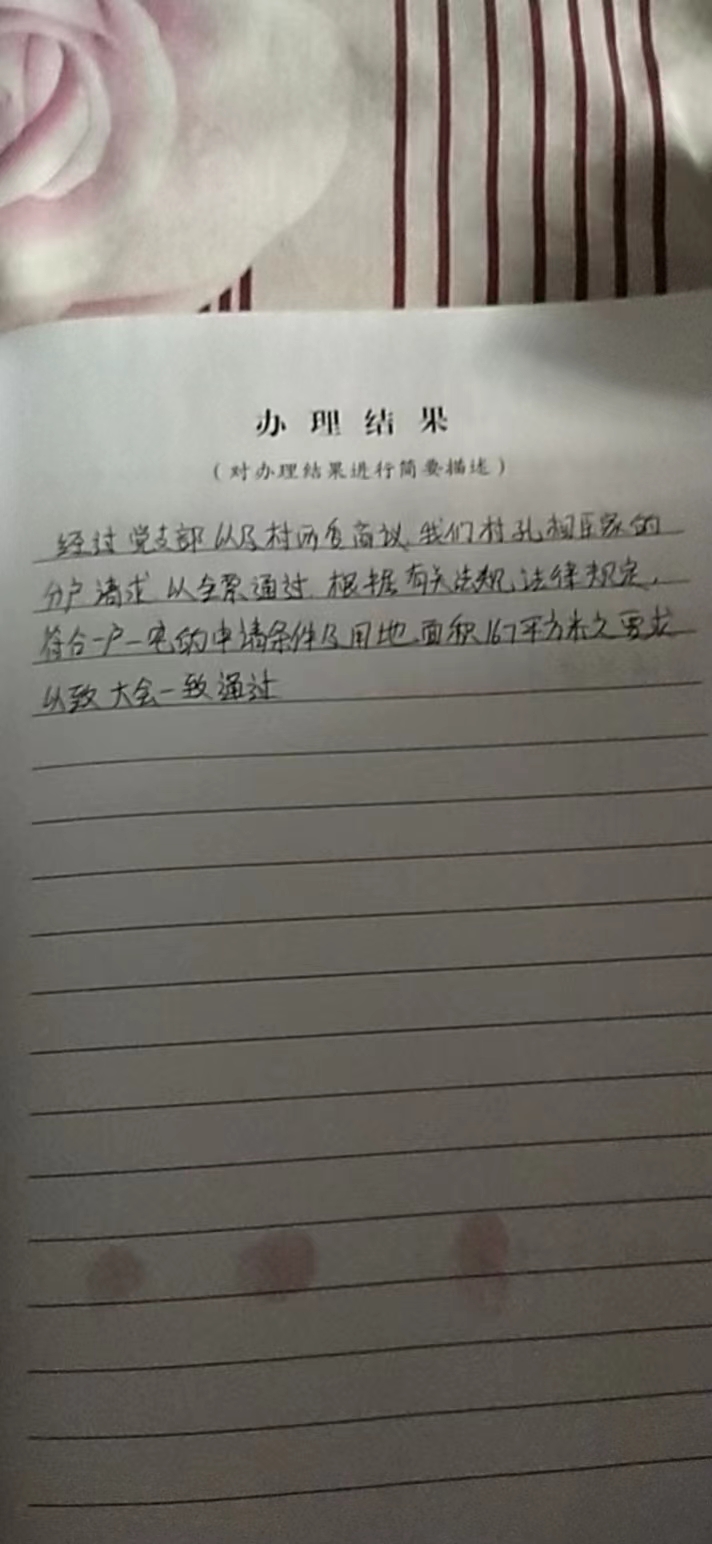 办理结果
（对办理结果进行简要描述）
经过党支部以及村两委商议、我们村孔相臣家的
分户请求 以全票通过 根据有关法规、法律规定，
符合一户一宅的申请条件及用地面积167平方米之要求
以致大会一致通过